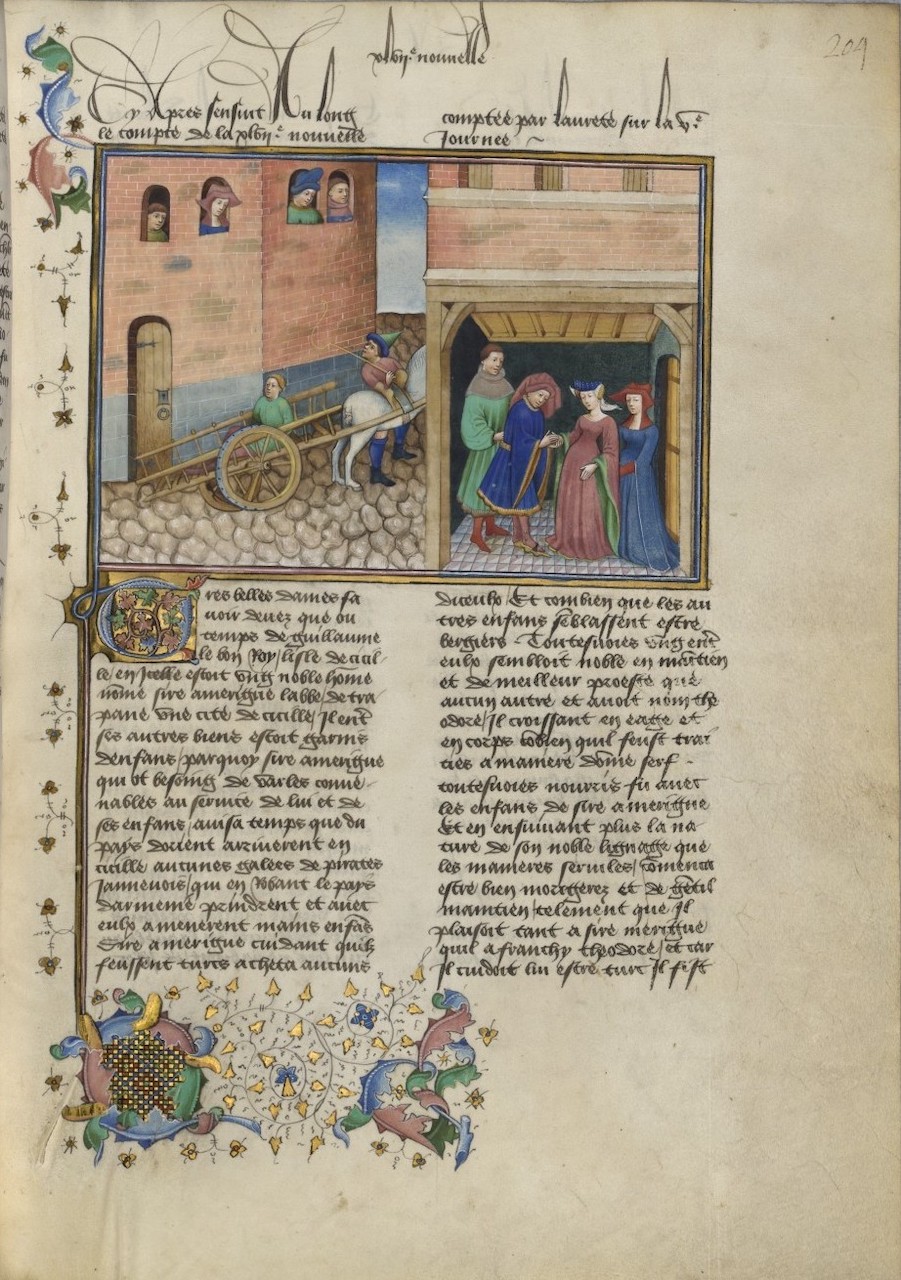 204
xlvii.e nouuelle
Cy Apres sensuit Au long
le compte de la xlvii.e nouuelle
comptee par Laurete sur la v.e
Journee ~
Tres belles dames sa
uoir deuez que ou
temps de guillaume
le bon Roy / lisle de cicil-
le en Icelle estoit vng noble home
nome sire amerigue labbe de tra
pane vne cite de cicille / Il entre
ses autres biens estoit garnis
denfans / parquoy sire amerigue
qui ot besoing de varles conue-
nables au seruice de lui et de
ses enfans / auisa temps que du
pays dorient arriuerent en
cicille aucunes galees de pirates
Jannevois / qui en Robant le pays
darmenie prindrent et auec
eulx amenerent mains enfans
Sire amerigue cuidant quilz
feussent turcs acheta aucuns
diceulx / Et combien que les au
tres enfans seblassent estre
bergiers Toutesuoies vng entre
eulx sembloit noble en maintien
et de meilleur proesse que
aucun autre et auoit nom the
odore / Il croissant en eage et
en corps combien quil feust trai
ties a maniere dome serf -
toutesuoies nourris fu auec
les enfans de sire amerigue
Et en ensuiuant plus la na
ture de son noble lignagge que
les manieres seruiles / comenca
estre bien morigerez et de gentil
maintien / telement que Il
plaisoit tant a sire merigue
quil afranchy theodore / et car
Il cuidoit lui estre turc Il fist